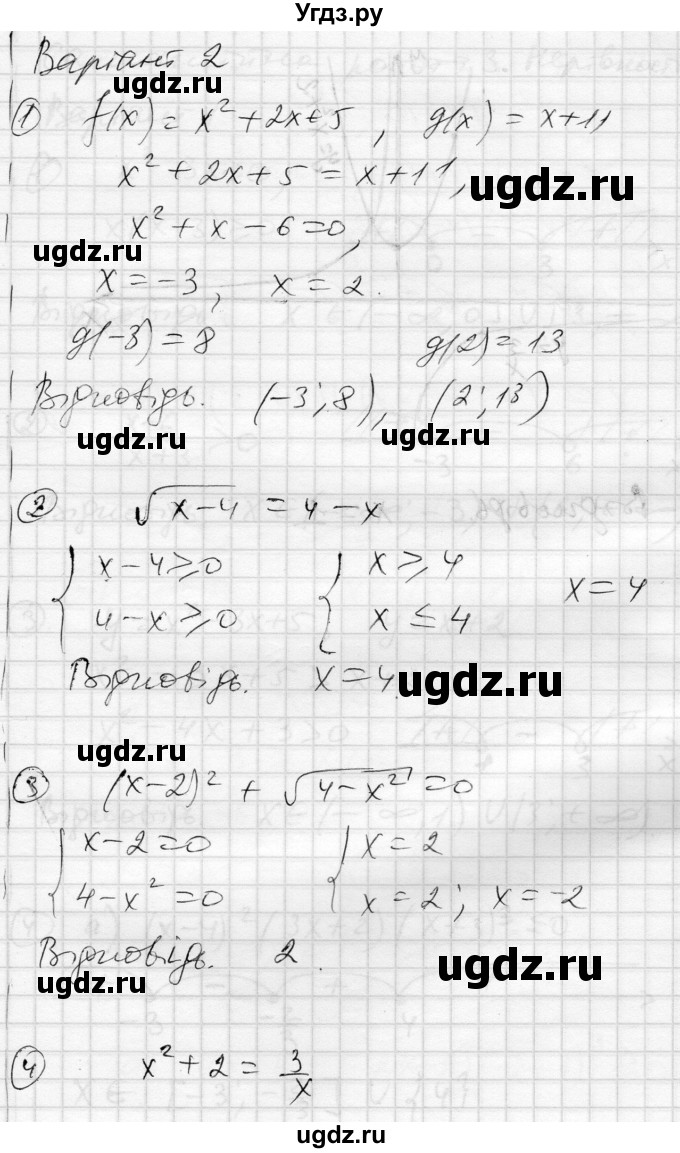 Угдз.ру
Варіант 2
ugdz.ru
① f(x) = x² + 2x + 5 , g(x) = x + 11
x² + 2x + 5 = x + 11,
ugdz.ru
x² + x − 6 = 0,
ugdz.ru
x = −3, x = 2.
g(−3) = 8 g(2) = 13
Відповідь. (−3; 8), (2; 13)
ugdz.ru ugdz.ru
② √(x−4) = 4 − x
{ x − 4 ⩾ 0 { x ⩾ 4 x = 4
{ 4 − x ⩾ 0 { x ≤ 4
Відповідь. x = 4.
ugdz.ru
ugdz.ru
③ (x−2)² + √(4−x²) = 0
{ x − 2 = 0 { x = 2
{ 4 − x² = 0 { x = 2; x = −2
Відповідь. 2.
ugdz.ru ugdz.ru
④ x² + 2 = 3/x
ugdz.ru